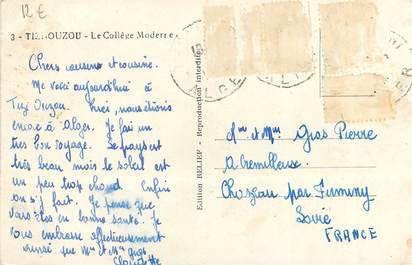 12€
3 - TIZI-OUZOU - Le Collège Moderne
Chers cousins et cousine.
Me voici aujourd'hui à
Tizi Ouzou. hier, nous étions
encore à Alger. Je fais un
très bon voyage. Le pays est
très beau mais le soleil est
un peu trop chaud. Enfin
on s'y fait. Je pense que
vous êtes en bonne santé. Je
vous embrasse affectueusement
ainsi que Mr et Mme Gras
Claudette
Edition RELIEF - Reproduction interdite
Mr et Mme Gras Pierre
Chazeau par Firminy
Loire
FRANCE